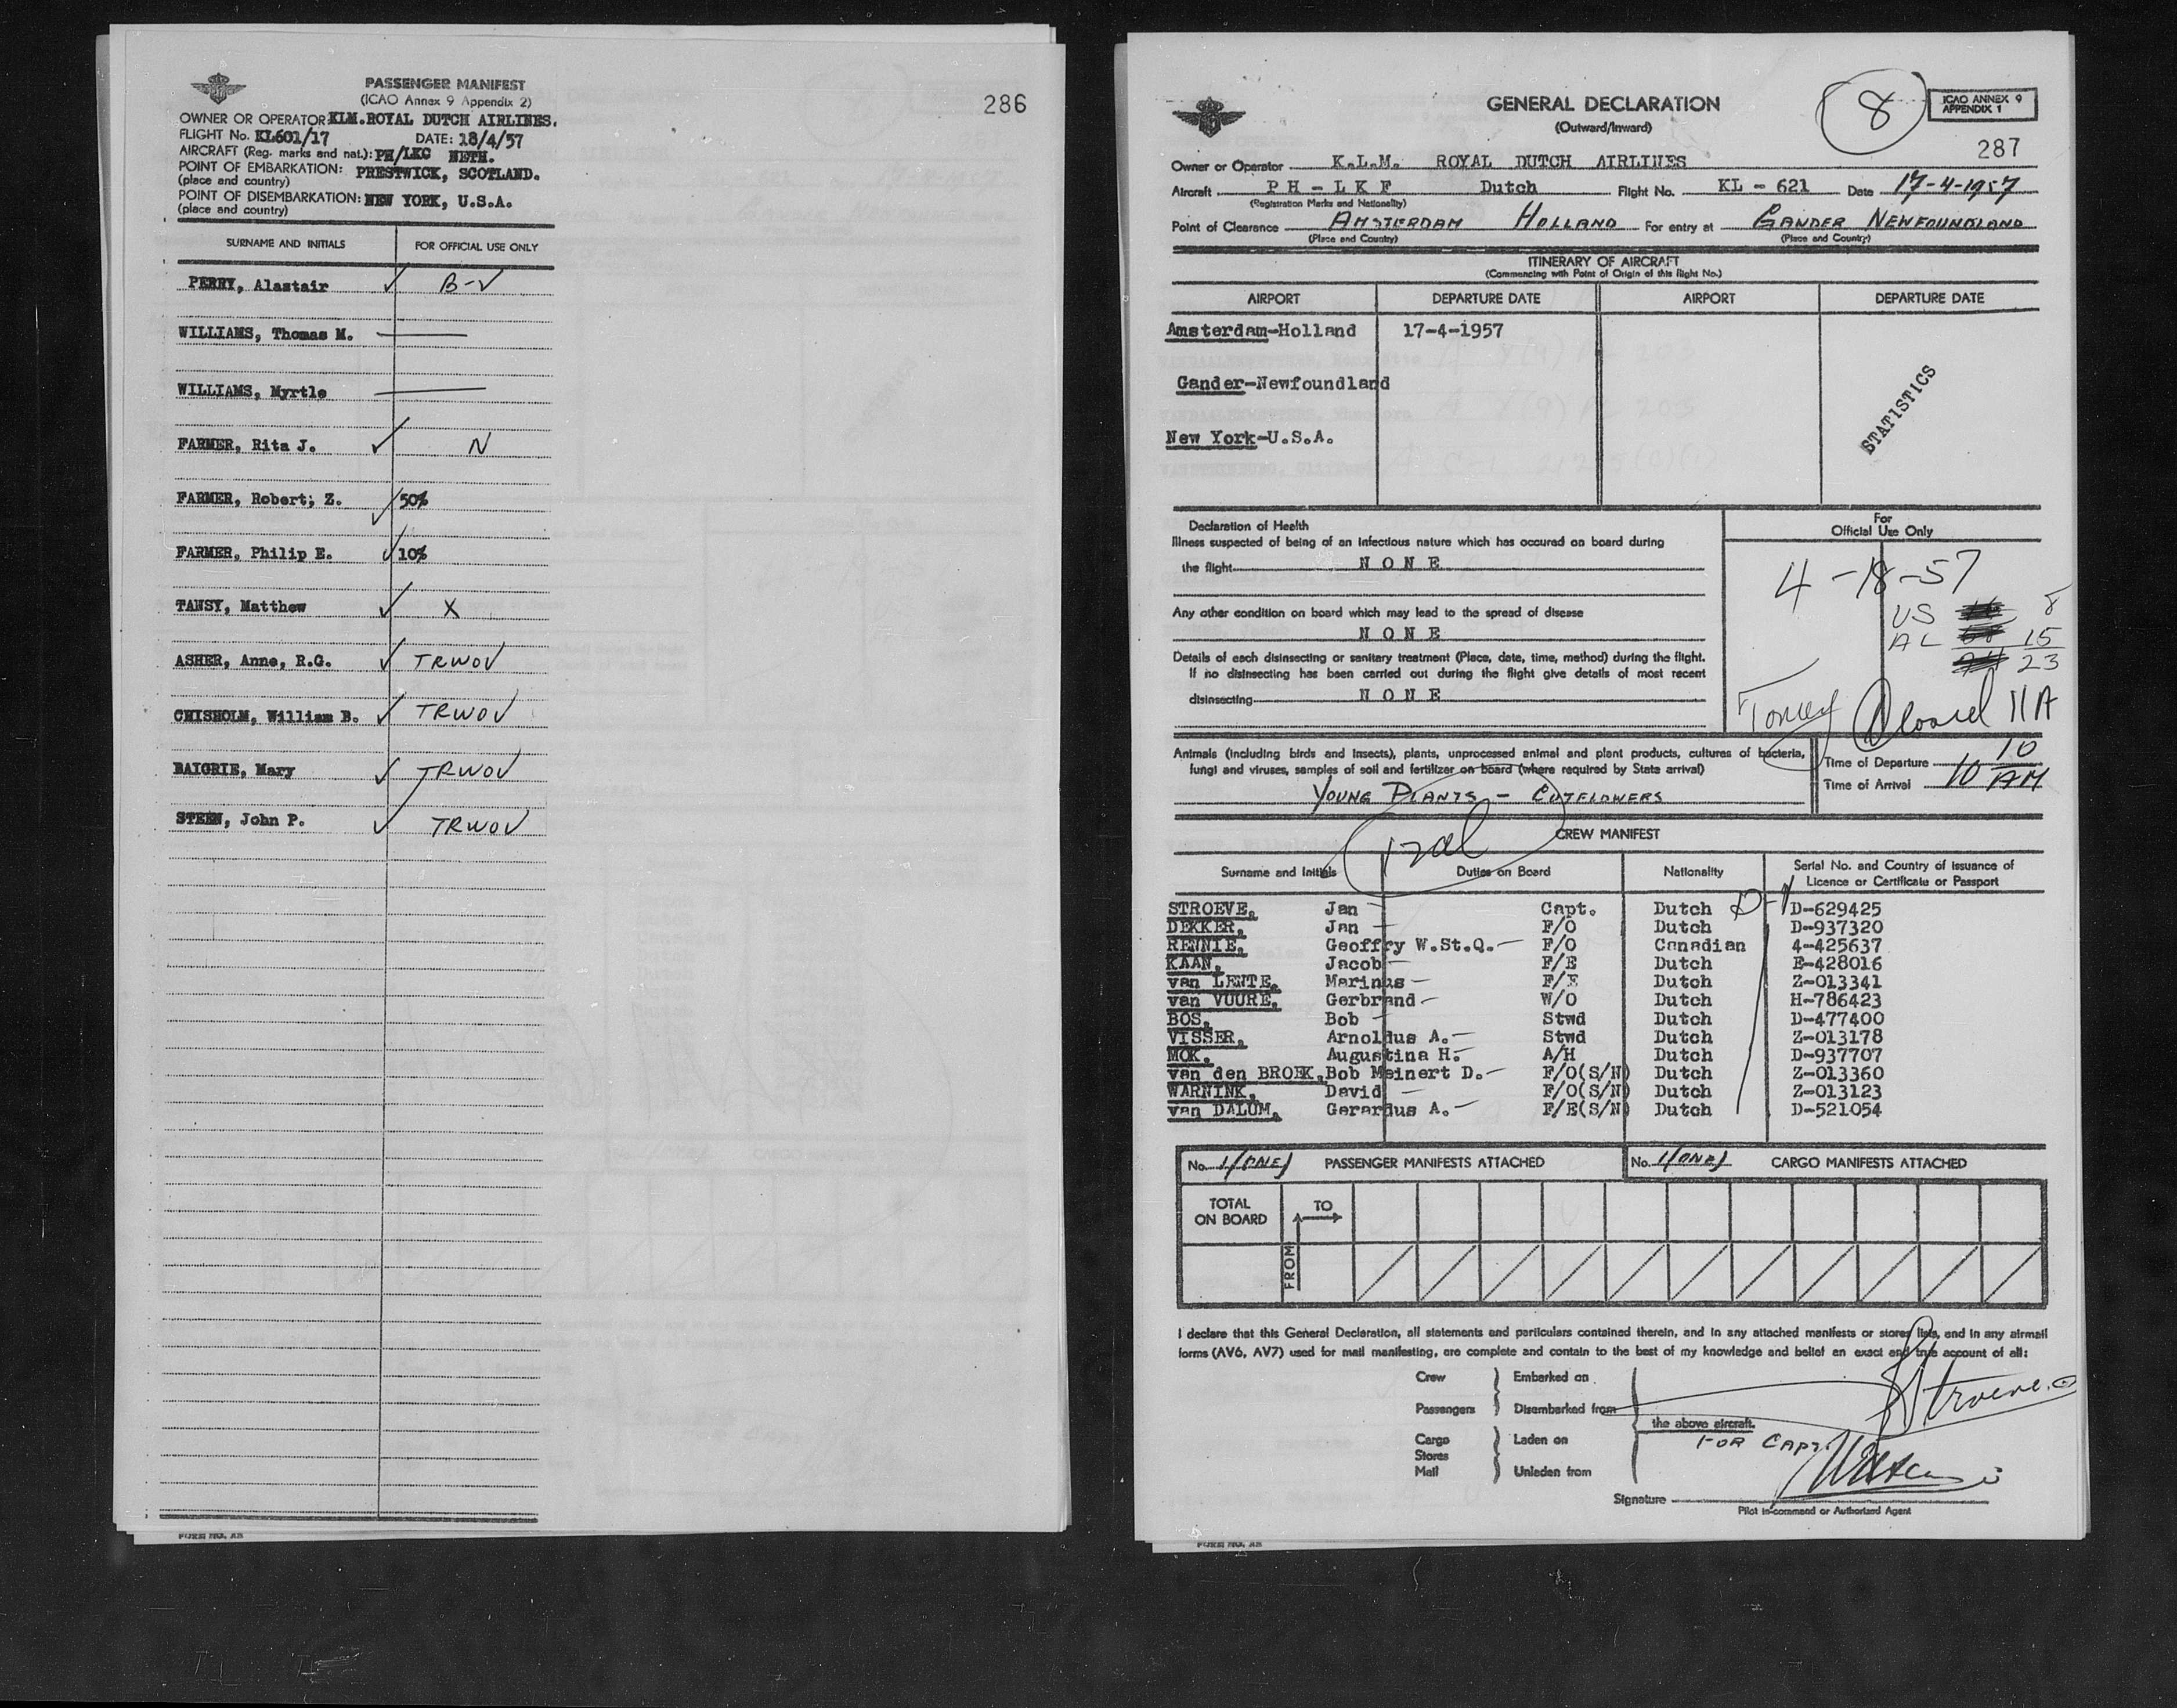 PASSENGER MANIFEST
(ICAO Annex 9 Appendix 2)
286
OWNER OR OPERATOR KLM.ROYAL DUTCH AIRLINES.
FLIGHT No. KL601/17 DATE: 18/4/57
AIRCRAFT (Reg. marks and nat.): PH/LKC NETH.
POINT OF EMBARKATION: PRESTWICK, SCOTLAND.
(place and country)
POINT OF DISEMBARKATION: NEW YORK, U.S.A.
(place and country)
SURNAME AND INITIALS FOR OFFICIAL USE ONLY
PERRY, Alastair ✓ B-V
WILLIAMS, Thomas M. —
WILLIAMS, Myrtle —
FARMER, Rita J. ✓ N
FARMER, Robert; Z. ✓ 50%
FARMER, Philip E. ✓ 10%
TANSY, Matthew ✓ X
ASHER, Anne, R.G. ✓ TRWOV
CHISHOLM, William B. ✓ TRWOV
BAIGRIE, Mary ✓ TRWOV
STEEN, John P. ✓ TRWOV
FORM NO. AB
GENERAL DECLARATION
(Outward/Inward)
8
ICAO ANNEX 9
APPENDIX 1
287
Owner or Operator K.L.M. ROYAL DUTCH AIRLINES
Aircraft PH-LKF Dutch Flight No. KL - 621 Date 17-4-1957
(Registration Marks and Nationality)
Point of Clearance AMSTERDAM HOLLAND For entry at GANDER NEWFOUNDLAND
(Place and Country) (Place and Country)
ITINERARY OF AIRCRAFT
(Commencing with Point of Origin of this flight No.)
AIRPORT DEPARTURE DATE AIRPORT DEPARTURE DATE
Amsterdam-Holland 17-4-1957
Gander-Newfoundland
New York-U.S.A.
STATISTICS
Declaration of Health
Illness suspected of being of an infectious nature which has occured on board during
the flight NONE
Any other condition on board which may lead to the spread of disease
NONE
Details of each disinsecting or sanitary treatment (Place, date, time, method) during the flight.
If no disinsecting has been carried out during the flight give details of most recent
disinsecting NONE
For
Official Use Only
4-18-57
US 8
AL 15
23
11A
Animals (including birds and insects), plants, unprocessed animal and plant products, cultures of bacteria,
fungi and viruses, samples of soil and fertilizer on board (where required by State arrival)
YOUNG PLANTS - CUTFLOWERS
Time of Departure 10
Time of Arrival 10 AM
CREW MANIFEST
Surname and Initials Duties on Board Nationality Serial No. and Country of Issuance of
Licence or Certificate or Passport
STROEVE, Jan Capt. Dutch D-629425
DEKKER, Jan F/O Dutch D-937320
RENNIE, Geoffry W.St.Q. F/O Canadian 4-425637
KAAN, Jacob F/E Dutch E-428016
van LENTE, Marinus F/E Dutch Z-013341
van VUURE, Gerbrand W/O Dutch H-786423
BOS, Bob Stwd Dutch D-477400
VISSER, Arnoldus A. Stwd Dutch Z-013178
MOK, Augustina H. A/H Dutch D-937707
van den BROEK, Bob Meinert D. F/O(S/N) Dutch Z-013360
WARNINK, David F/O(S/N) Dutch Z-013123
van DALUM, Gerardus A. F/E(S/N) Dutch D-521054
No. 1/(ONE) PASSENGER MANIFESTS ATTACHED No. 1/(ONE) CARGO MANIFESTS ATTACHED
TOTAL
ON BOARD
TO
FROM
I declare that this General Declaration, all statements and particulars contained therein, and in any attached manifests or stores lists, and in any airmail
forms (AV6, AV7) used for mail manifesting, are complete and contain to the best of my knowledge and belief an exact and true account of all:
Crew Embarked on
Passengers Disembarked from
the above aircraft.
Cargo Laden on
Stores
Mail Unladen from
Stroeve.
FOR CAPT.
Signature
Pilot in-command or Authorized Agent
FORM NO. AB